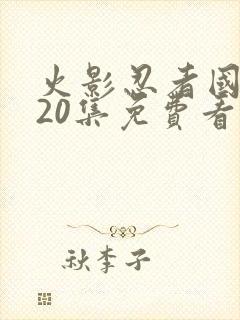 火影忍者國
20集免費看
秋李子